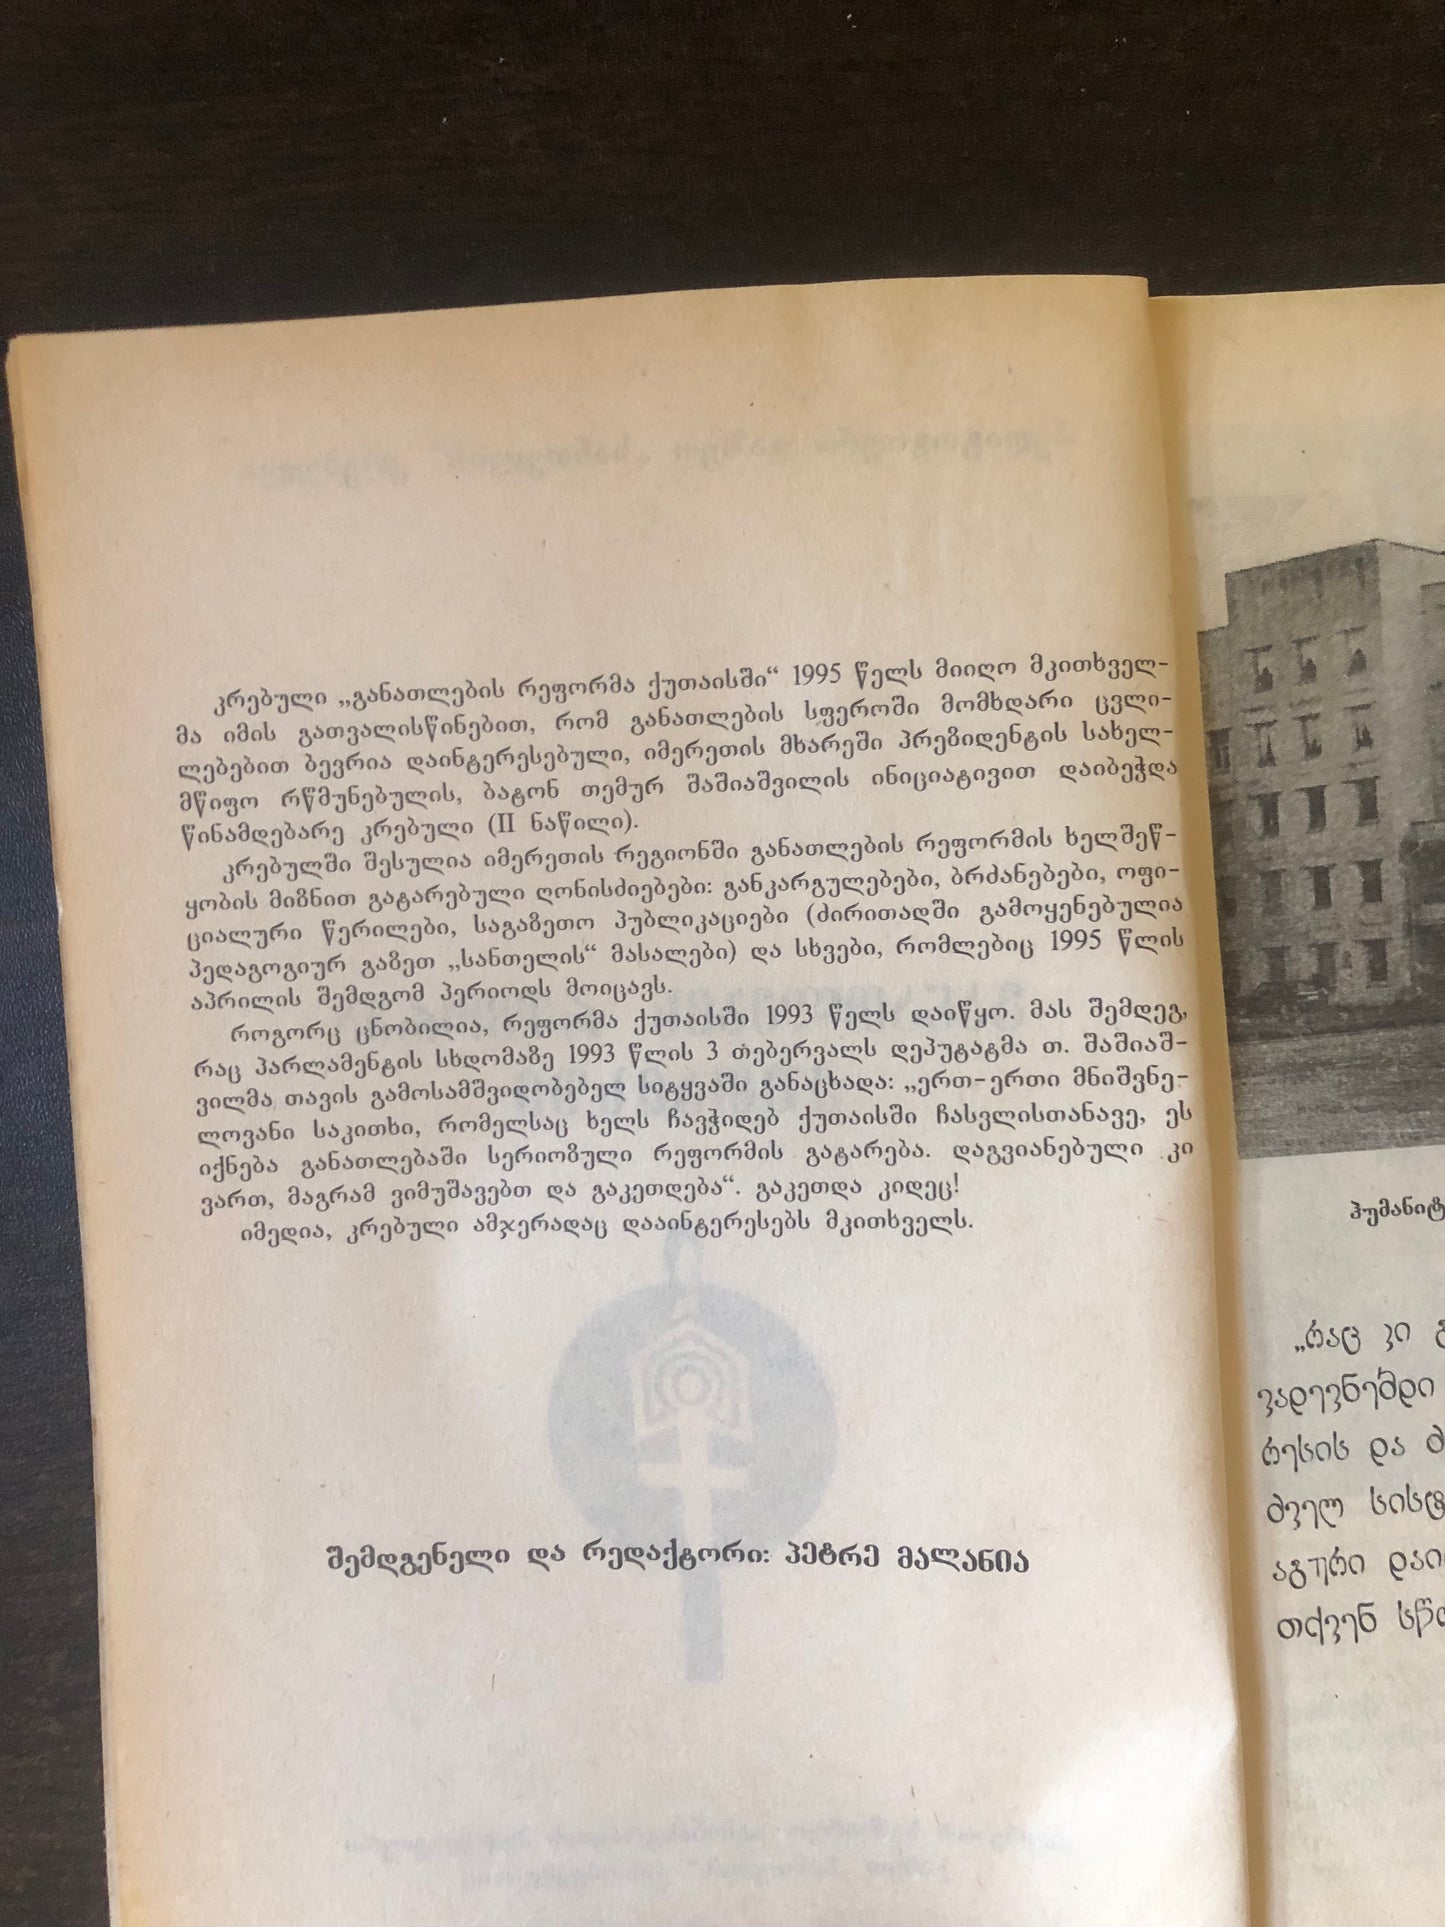 კრებული „განათლების რეფორმა ქუთაისში“ 1995 წელს მიიღო მკითხველ-
მა იმის გათვალისწინებით, რომ განათლების სფეროში მომხდარი ცვლი-
ლებებით ბევრია დაინტერესებული, იმერეთის მხარეში პრეზიდენტის სახელ-
მწიფო რწმუნებულის, ბატონ თემურ შაშიაშვილის ინიციატივით დაიბეჭდა
წინამდებარე კრებული (II ნაწილი).
კრებულში შესულია იმერეთის რეგიონში განათლების რეფორმის ხელშეწ-
ყობის მიზნით გატარებული ღონისძიებები: განკარგულებები, ბრძანებები, ოფი-
ციალური წერილები, საგაზეთო პუბლიკაციები (ძირითადში გამოყენებულია
პედაგოგიურ გაზეთ „სანთელის“ მასალები) და სხვები, რომლებიც 1995 წლის
აპრილის შემდგომ პერიოდს მოიცავს.
როგორც ცნობილია, რეფორმა ქუთაისში 1993 წელს დაიწყო. მას შემდეგ,
რაც პარლამენტის სხდომაზე 1993 წლის 3 თებერვალს დეპუტატმა თ. შაშიაშ-
ვილმა თავის გამოსამშვიდობებელ სიტყვაში განაცხადა: „ერთ-ერთი მნიშვნე-
ლოვანი საკითხი, რომელსაც ხელს ჩავჭიდებ ქუთაისში ჩასვლისთანავე, ეს
იქნება განათლებაში სერიოზული რეფორმის გატარება. დაგვიანებული კი
ვართ, მაგრამ ვიმუშავებთ და გაკეთდება“. გაკეთდა კიდეც!
იმედია, კრებული ამჯერადაც დააინტერესებს მკითხველს.
შემდგენელი და რედაქტორი: პეტრე მალანია
ჰუმანიტ
„რაც კი
ვადევნემდი
რესის და
ძველ სისტ
აგური დაი
თქვენ სწო